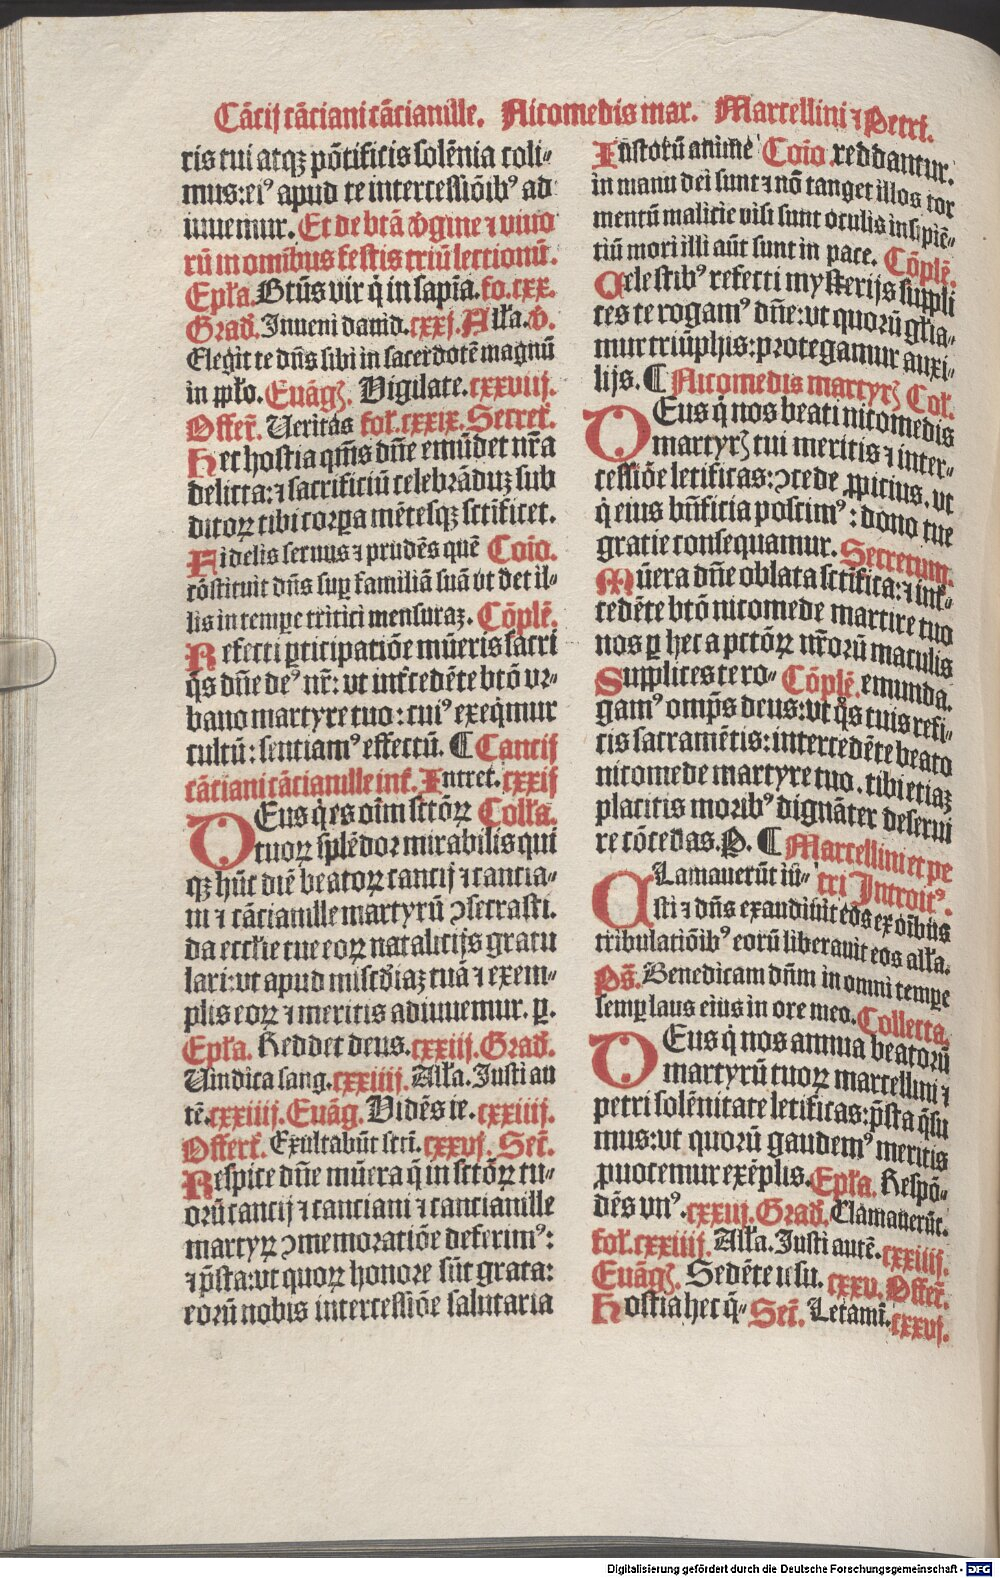 Cācij cāciani cācianille. Nicomedis mar. Marcellini ⁊ Petri.
ris tui atqꝫ pōtificis solēnia coli-
mus: eiꝰ apud te intercessiōibꝰ ad
iuuemur. Et de btā v̄gine ⁊ viuo
rū in omībus festis triū lectionū.
Epła. Btūs vir q̇ in sapīa. fo. cxx.
Grad̄. Inueni dauid. cxxj. Ałła. v̄.
Elegit te dn̄s sibi in sacerdotē magnū
in ꝓło. Euāgꝭ. Vigilate. cxxviij.
Offer̄. Veritas foł. cxxix. Secret̄.
Hec hostia qm̄s dn̄e emūdet nr̄a
delicta: ⁊ sacrificiū celebrāduꝫ sub
ditoꝝ tibi corꝑa mētesqꝫ sctīficet.
Fidelis seruus ⁊ prudēs quē Coīo.
cōstituit dn̄s suꝑ familiā suā vt det il-
lis in tempe tritici mensuraꝫ. Cōplē.
Refecti ꝑticipatiōe mūeris sacri
q̄s dn̄e deꝰ nr̄: vt int̄cedēte btō vr-
bano martyre tuo: cuiꝰ exeq̇mur
cultū: sentiamꝰ effectū. ¶ Cancij
cāciani cācianille int̄. Intret. cxxij
DEus q̇ es oīm sctōꝝ Colła.
tuoꝝ splēdor mirabilis qui
qꝫ hūc diē beatoꝝ cancij ⁊ cancia-
ni ⁊ cācianille martyrū ꝯsecrasti.
da eccłie tue eoꝝ natalicijs gratu
lari: vt apud misc̄diaꝫ tuā ⁊ exem-
plis eoꝝ ⁊ meritis adiuuemur. ꝑ.
Epła. Reddet deus. cxxiij. Grad̄.
Vindica sang. cxxiiij. Ałła. Iusti au
tē. cxxiiij. Euāg. Vidēs ie. cxxiiij.
Offert̄. Exultabūt sctī. cxxvj. Sec̄.
Respice dn̄e mūera q̄ in sctōꝝ tu-
orū cancij ⁊ canciani ⁊ cancianille
martyꝝ ꝯmemoratiōe deferimꝰ:
⁊ p̄sta: vt quoꝝ honore sūt grata:
eorū nobis intercessiōe salutaria
Iustorū anime Coīo. reddantur.
in manu dei sunt ⁊ nō tanget illos tor
mentū malicie visi sunt oculis insipiē-
tiū mori illi aūt sunt in pace. Cōplē.
Celestibꝰ refecti mysterijs suppli
ces te rogamꝰ dn̄e: vt quorū gl̄ia-
mur triūphis: protegamur auxi-
lijs. ¶ Nicomedis martyrꝭ Coł.
DEus q̇ nos beati nicomedis
martyrꝭ tui meritis ⁊ inter-
cessiōe letificas: ꝯcede ꝓpicius. vt
q̇ eius bn̄ficia poscimꝰ: dono tue
gratie consequamur. Secretum.
Mūera dn̄e oblata sctīfica: ⁊ int̄-
cedēte btō nicomede martire tuo
nos ꝑ hec a pctōꝝ nr̄orū maculis
Supplices te ro- Cōplē. emunda.
gamꝰ omp̄s deus: vt q̄s tuis refi-
cis sacramētis: intercedēte beato
nicomede martyre tuo. tibi etiaꝫ
placitis moribꝰ dignāter deserui
re cōcedas. P. ¶ Marcellini et pe
CLamauerūt iu- tri Introitꝰ.
sti ⁊ dn̄s exaudiuit eos ex oībus
tribulatiōibꝰ eorū liberauit eos ałła.
Ps̄. Benedicam dn̄m in omni tempe
semꝑ laus eius in ore meo. Collecta.
DEus q̇ nos annua beatorū
martyrū tuoꝝ marcellini ⁊
petri solēnitate letificas: p̄sta q̄su
mus: vt quorū gaudemꝰ meritis
ꝓuocemur exēplis. Epła. Respō-
dēs vnꝰ. cxxiij. Grad̄. Clamauerūt.
foł. cxxiiij. Ałła. Iusti autē. cxxiiij.
Euāgꝭ. Sedēte iesu. cxxv. Offer̄.
Hostia hec q̄- Sec̄. Letamī. cxxvj.
Digitalisierung gefördert durch die Deutsche Forschungsgemeinschaft - DFG